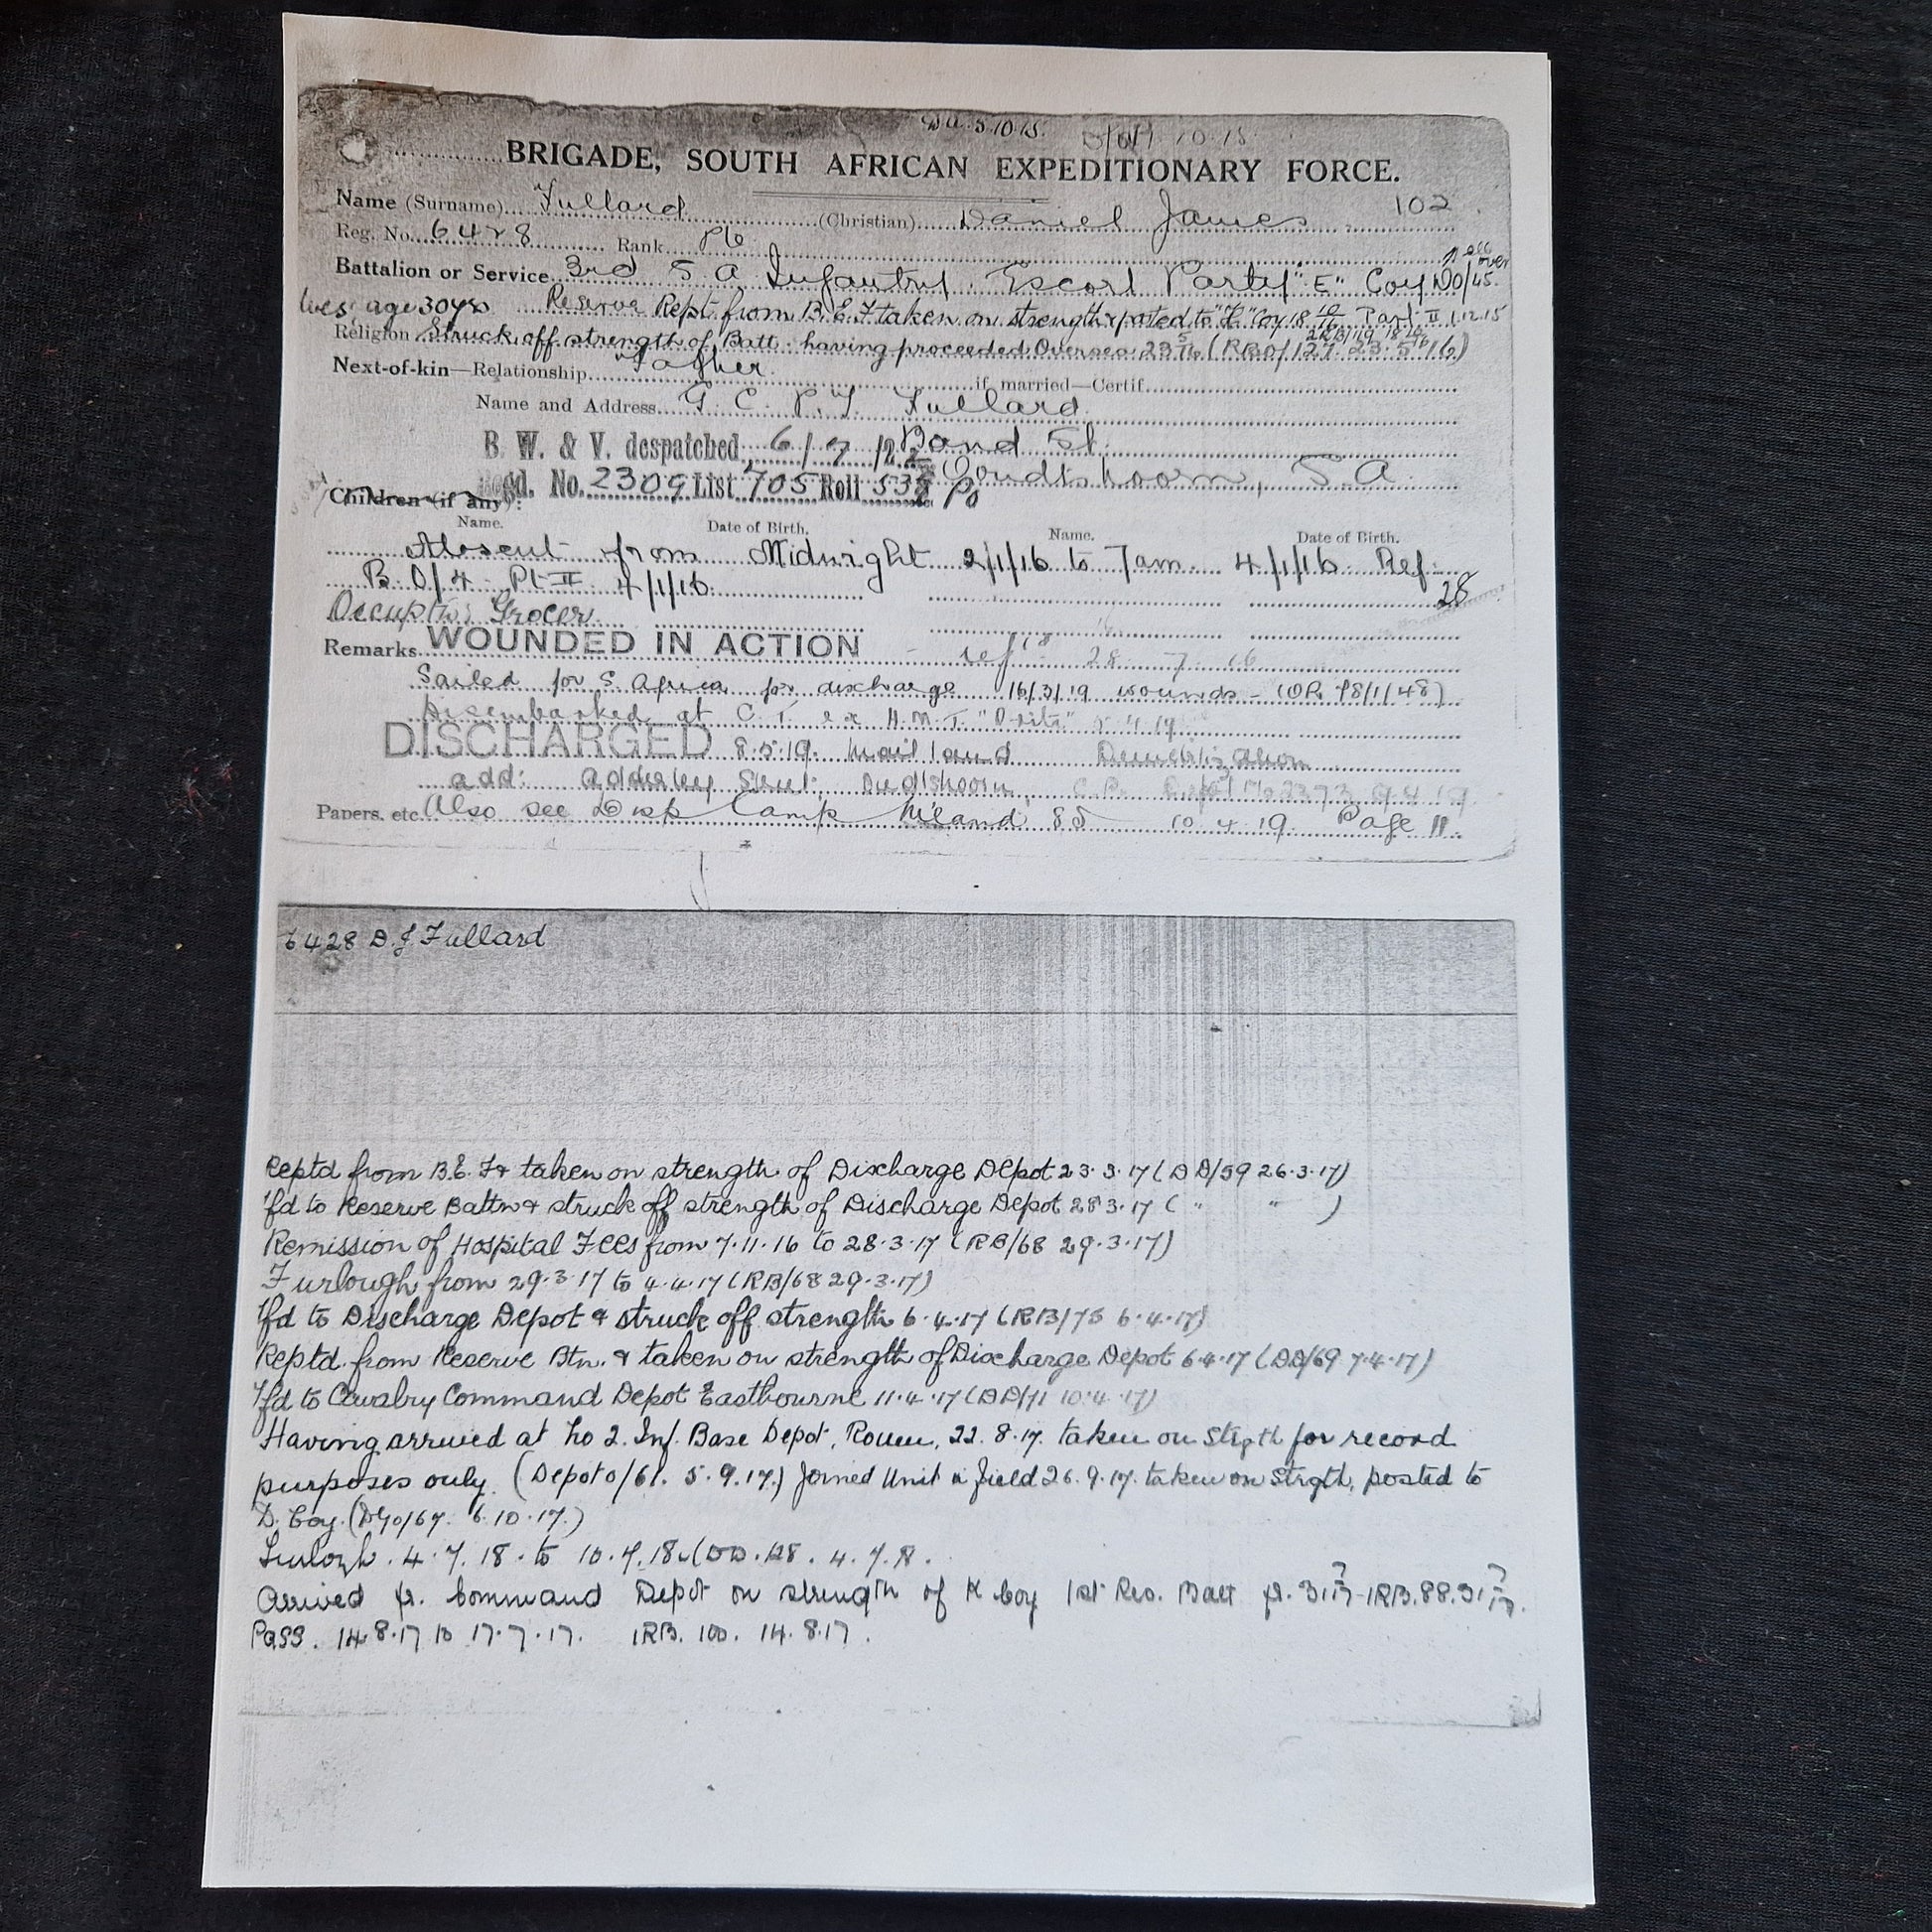 5.10.15. 10.15
BRIGADE, SOUTH AFRICAN EXPEDITIONARY FORCE.
Name (Surname) Fullard (Christian) Daniel James 102
Reg. No. 6428 Rank Pte
Battalion or Service 3rd S A Infantry. Escort Party "E" Coy DO/45.
age 30 yrs Reserve Rept. from B.E.F taken on strength & posted to "H" Coy 18 10/16 Part II 1.12.15
Religion Struck off strength of Batt. having proceeded Overseas 23 5/16 (RBO/127. 23.5.16)
Next-of-kin—Relationship Father if married—Certif.
Name and Address G. C. P. J. Fullard
B. W. & V. despatched 6/7/22 Band St.
gd. No. 2309 List 705 Roll 538 Oudtshoorn, S.A.
Children (if any):
Name. Date of Birth. Name. Date of Birth.
Absent from Midnight 2/1/16 to 7am 4/1/16 Ref:
B.O/4 Pt II 4/1/16. 28
Occupation Grocer
Remarks WOUNDED IN ACTION 28 7 16
Sailed for S Africa for discharge 16/3/19 wounds - (OR. 78/1/48)
Disembarked at C.T. ex H.M.T. "Orita" 5.4.19
DISCHARGED 8.5.19. Maitland Demobilization
add: Adderley Street, Oudtshoorn C.P. 9 4 19
Papers, etc. Also see Disp Camp M'land 85 10.4.19. Page 11.
6428 D. J Fullard
Reptd from B.E.F & taken on strength of Discharge Depot 23.3.17 (DD/59 26.3.17)
Tfd to Reserve Battn & struck off strength of Discharge Depot 28 3.17 ( " " )
Remission of Hospital Fees from 7.11.16 to 28.3.17 (RB/68 29.3.17)
Furlough from 29.3.17 to 4.4.17 (RB/68 29.3.17)
Tfd to Discharge Depot & struck off strength 6.4.17 (RB/75 6.4.17)
Reptd. from Reserve Btn. & taken on strength of Discharge Depot 6.4.17 (DD/69 7.4.17)
Tfd to Cavalry Command Depot Eastbourne 11.4.17 (DD/71 10.4.17)
Having arrived at No 2. Inf. Base Depot, Rouen, 22.8.17. taken on Strgth for record
purposes only. (Depot o/61. 5.9.17.) Joined Unit in field 26.9.17. taken on Strgth, posted to
D. Coy. (DYo/67. 6.10.17.)
Furlogh. 4.7.18. to 10.7.18. (DD.128. 4.7.18.
Arrived fr. Command Depot on strength of K Coy 1st Res. Batt fr. 31 7/17 - 1RB. 88. 31 7/17.
Pass. 14.8.17 to 17.7.17. 1RB. 100. 14.8.17.